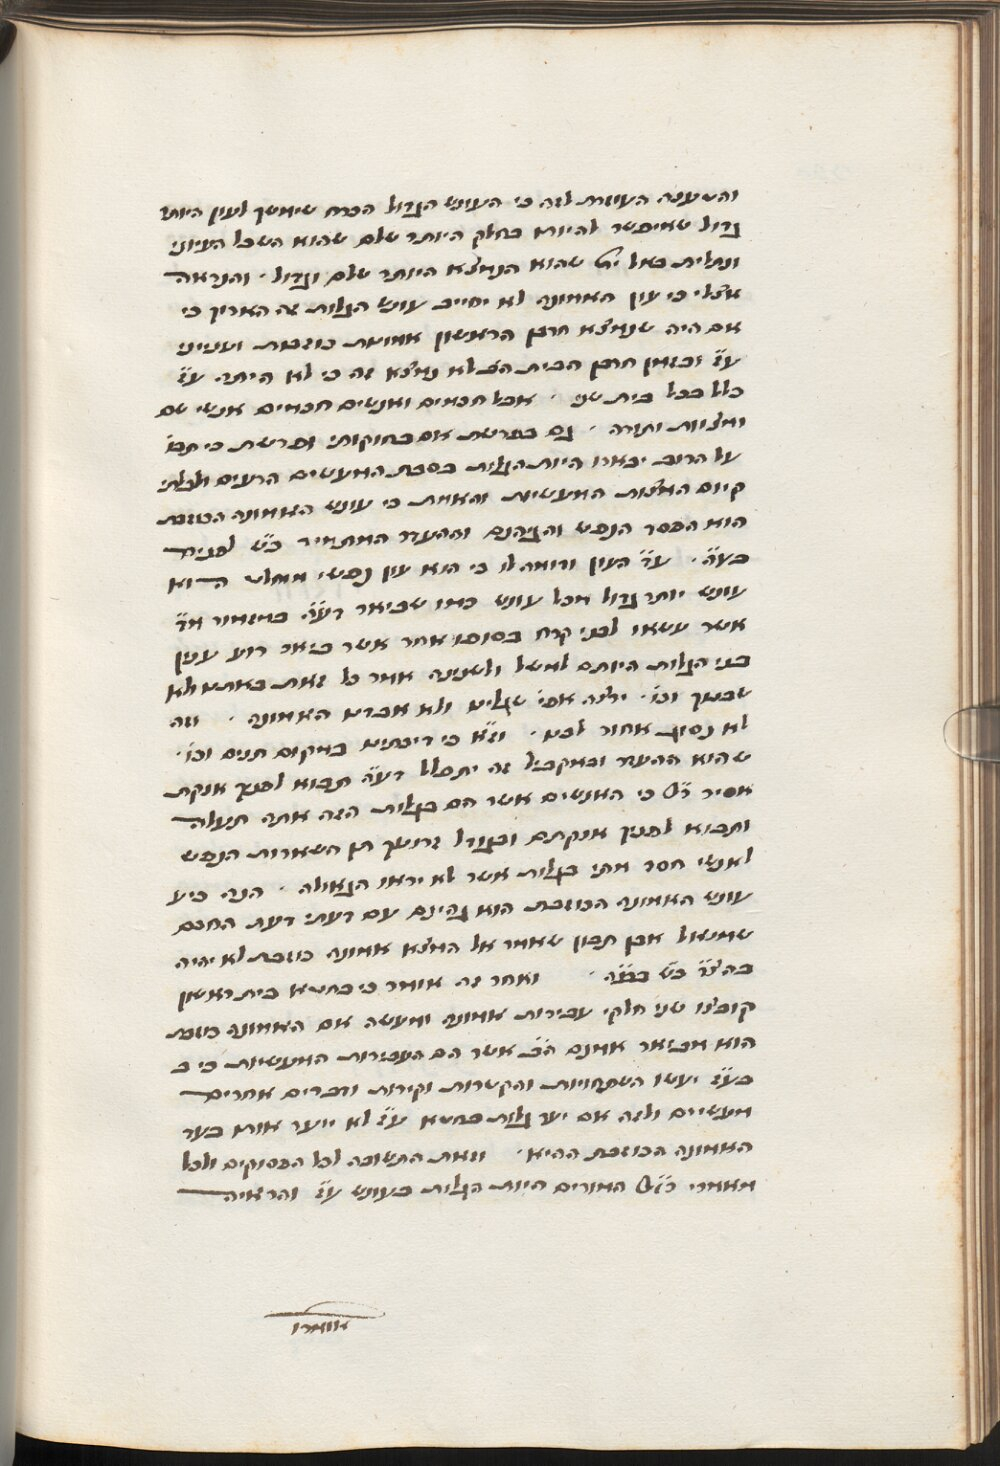 והטענה העוזרת לזה כי העונש הגדול הכרח שימשך לעון היותר
גדול שאיפשר להיות בחלק היותר שלם שהוא השכל העיוני
ותלית באל ית׳ שהוא הנמצא היותר שלם וגדול . והנראה
אצלי כי עון האמונה לא יחייב עונש הגלות זה הארוך כי
אם היה שנמצא חרבן הראשון אמונות כוזבות ועניני
ע״ז ובזמן חרבן הבית הב׳ לא נמצא זה כי לא היתה ע״ז
כלל בכל בית שני . אבל חכמים ואנשים חכמים אנשי שם
ומצוות ותורה . גם בפרשת אם בחוקותי ופרשת כי תבו׳
על הרוב יבארו היות הגלות בסבת המעשים הרעים ולבלתי
קיום המצות המעשיות והאמת כי עונש האמונה הכוזבת
הוא הפסד הנפש והגיהנם וההעדר המתמיד כ״ש לפנים
בע״ה . ע״ד העון ודומה לו כי הוא עון נפשי מוחלט הוא
עונש יותר גדול מכל עונש כמו שביאר דע״ה במזמור מ״ד
אשר עשאו לבני קרח בסוסו אחר אשר ביאר רוע ענין
בני הגלות היותם למשל ולשנינה אמר כל זאת באתנו ולא
שכחנוך וכו׳ . ירצה אפי׳ שגלינו ולא אבדנו האמונה . וזה
לא נסוג אחור לבנו . וז״א כי דיכתנו במקום תנים וכו׳ .
שהוא ההעדר ובמקביל זה יתפלל דע״ה תבוא לפניך אנקת
אסיר ר״ל כי האנשים אשר הם בגלות הזה אתה תעלה
ותבוא לפניך אנקתם ובגודל זרועך תן השארות הנפש
לאנשי חסד מתי בגלות אשר לא יראו הגאולה . הנה כי
עונש האמונה הכוזבת הוא גהינם עם דעתי דעת החכם
שמואל אבן תבון שאמר אל המצא אמונה כוזבת לא יהיה
בה״צ כ״ש בב״ה . ואחר זה אומר כי בחטא בית ראשון
קובצו שני חלקי עבירות אמונה ומעשה אם האמונה כוזבת
הוא מבואר אמנם הב׳ אשר הם העבירות המעשיות כי ב
בע״ז יעשו השתחויות והקטרות וקידות ודברים אחרים
מעשיים ולזה אם יעד גלות בחטא ע״ז לא ייעד אותו בעד
האמונה הכוזבת ההיא . וזאת התשובה לכל הפסוקים ולכל
מאמרי רז״ל המורים היות הגלות בעונש ע״ז והראיה
אומרו